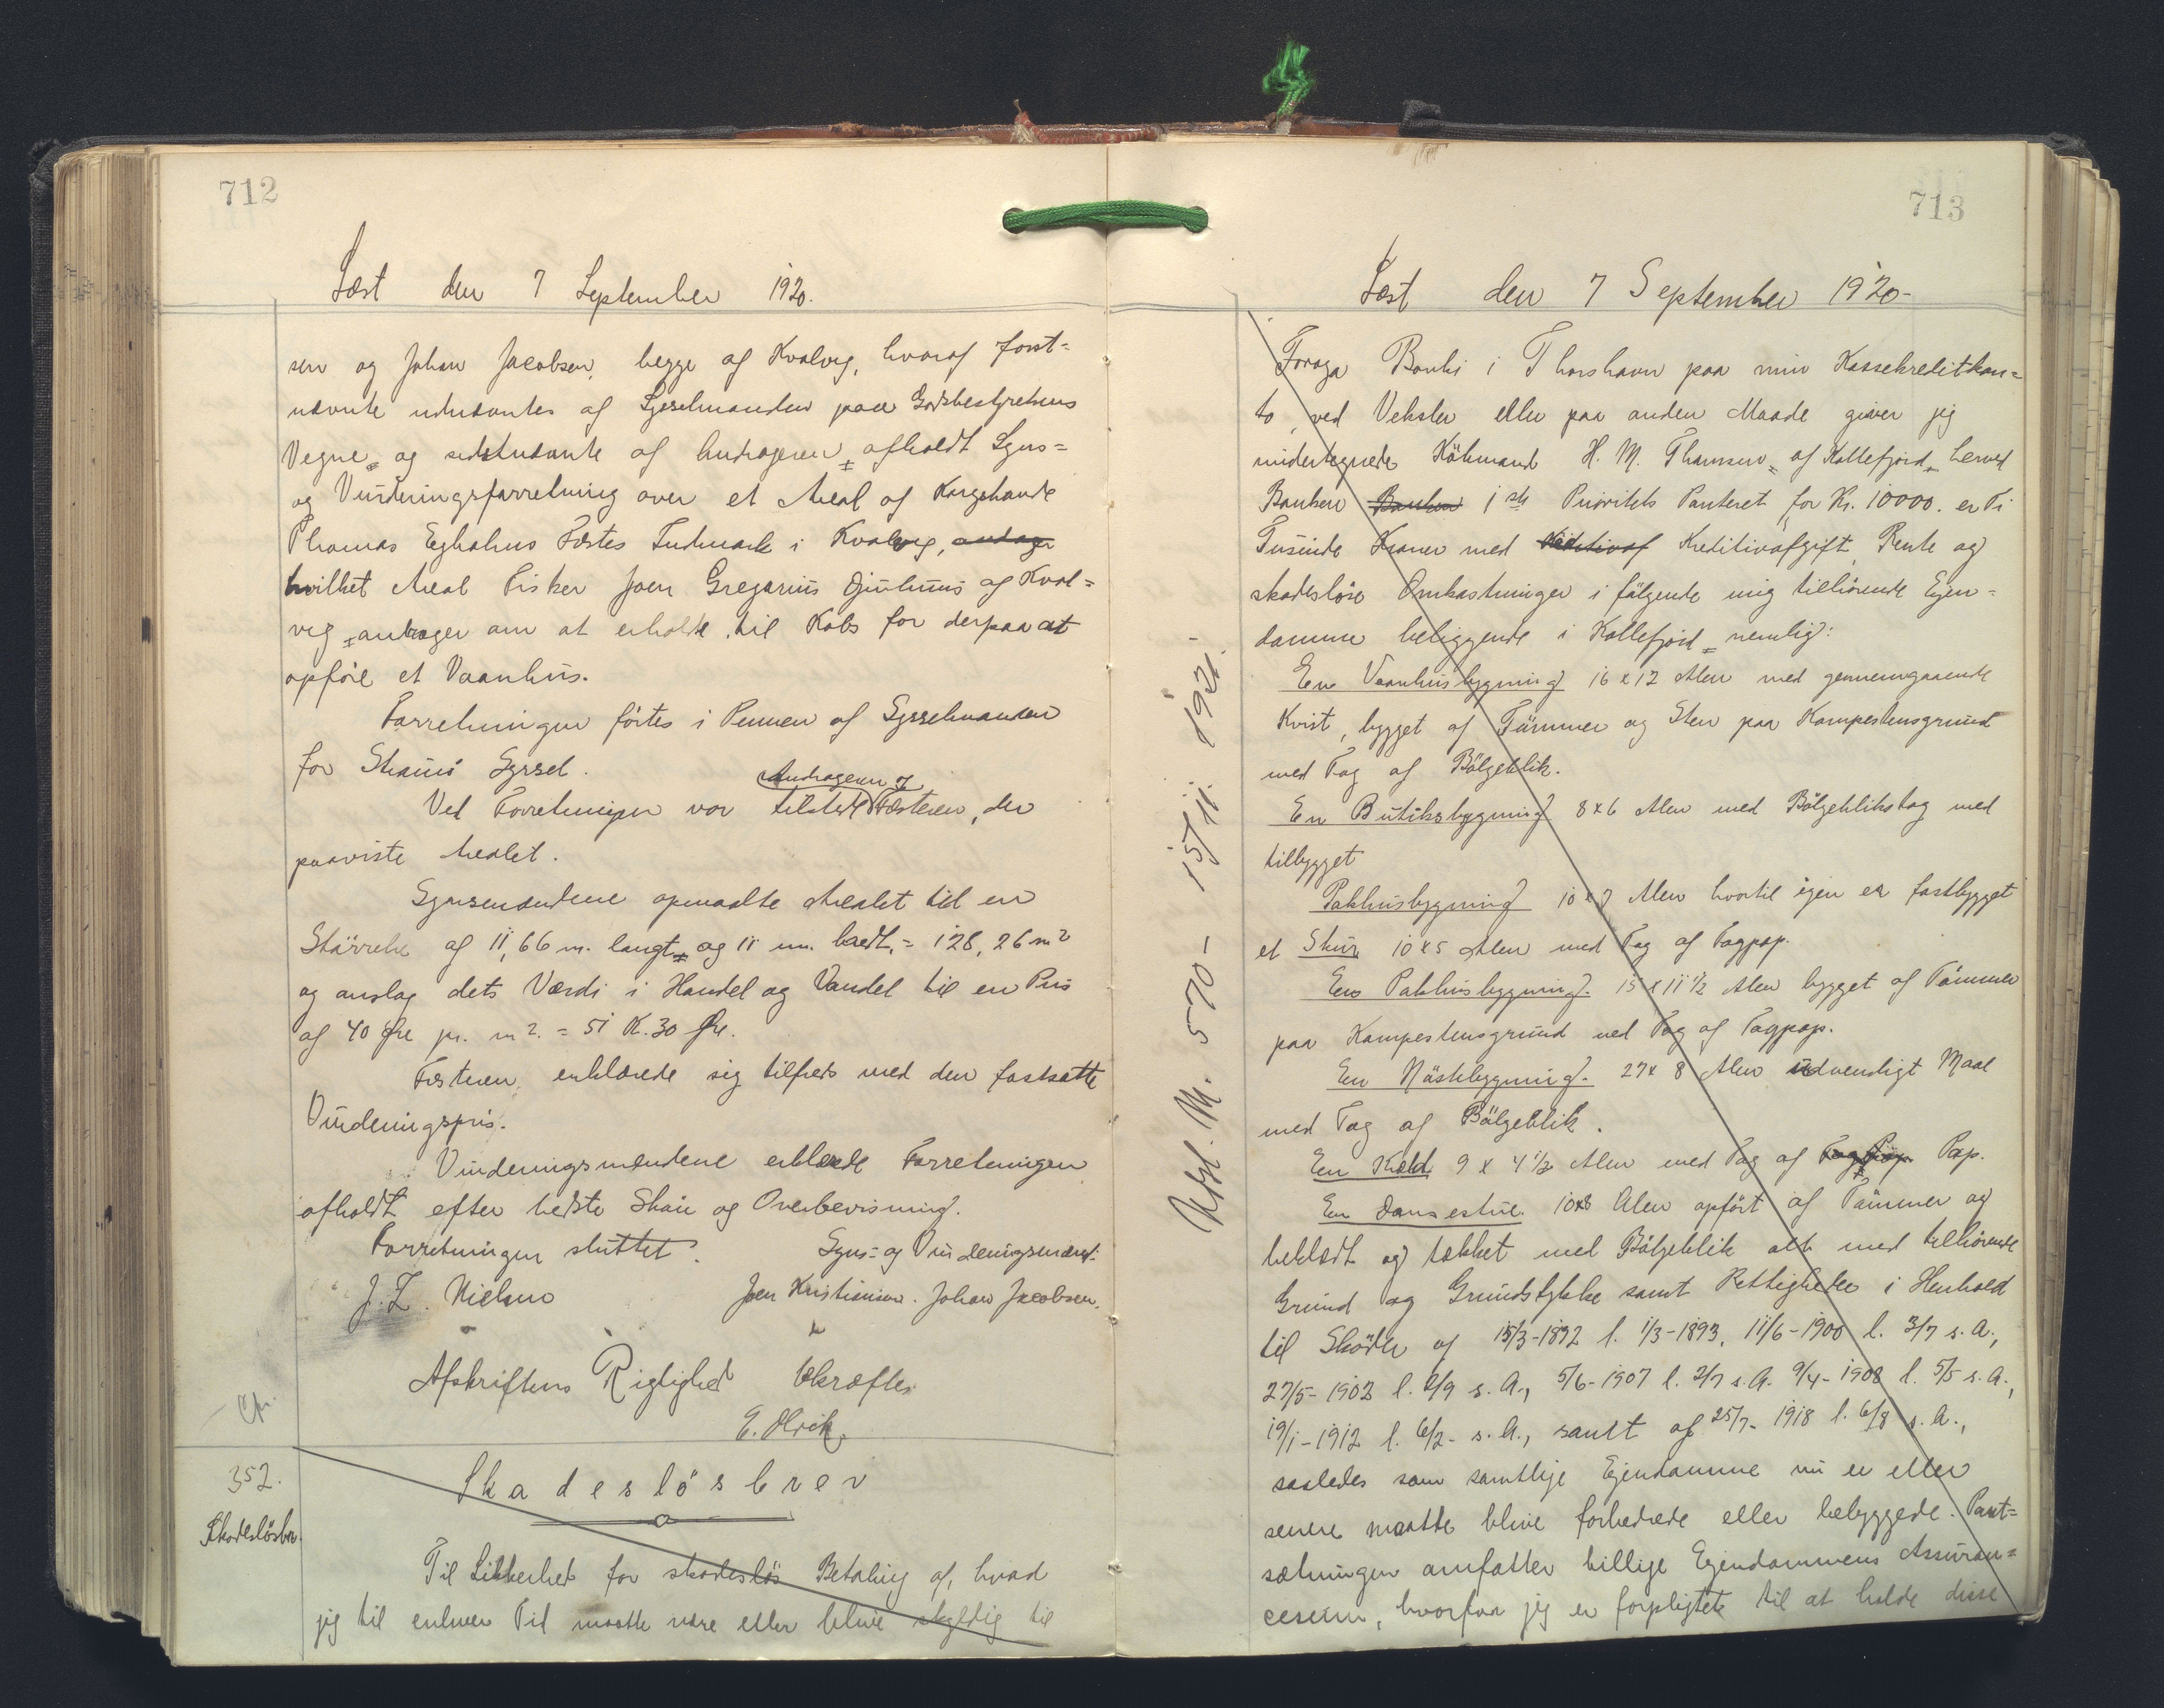 712
Læst den 7 September 1920.
sen og Johan Jacobsen, begge af Kvalvig, hvoraf først-
nævnte udnævntes af Sysselmanden paa Godsbestyrelsens
Vegne, og sidstnævnte af Andrageren, afholdt Syns-
og Vurderingsforretning over et Areal af Kongsbonde
Thomas Egholms Fæstes Indmark i Kvalvig, andager
hvilket Areal Fisker Joen Gregorius Djurhuus af Kval-
vig, andrager om at erholde til Købs for derpaa at
opføre et Vaanhus.
Forretningen førtes i Pennen af Sysselmanden
for Strømø Syssel.
Andrageren &
Ved Forretningen var tilstede Fæsteren, der
paaviste Arealet.
Synsmændene opmaalte Arealet til en
Størrelse af 11,66 m. langt, og 11 m. bredt, = 128,26 m2
og anslog dets Værdi i Handel og Vandel til en Pris
af 40 Øre pr. m2. = 51 K. 30 Øre.
Fæsteren erklærede sig tilfreds med den fastsatte
Vurderingspris.
Vurderingsmændene erklærede Forretningen
afholdt efter bedste Skøn og Overbevisning.
Forretningen sluttet. Syns- og Vurderingsmænd:
J. Z. Nielsen Joen Kristiansen. Johan Jacobsen.
Afskriftens Rigtighed bekræftes
E. Olrik
352.
Skadesløsbrev
Skadesløsbr.
Til Sikkerhed for skadesløs Betaling af, hvad
jeg til enhver Tid maatte være eller blive skyldig til
713
Læst den 7 September 1920-
Foroya Banki i Thorshavn paa min Kassekreditkon-
to, ved Veksler eller paa anden Maade giver jeg
undertegnede Købmand H. M. Thomsen, af Kollefjord, herved
Banken Banken 1ste Prioritets Panteret for Kr. 10000. er Ti
Tusinde Kroner med Kreditivaf Kreditivafgift, Rente og
skadesløse Omkostninger i følgende mig tilhørende Ejen-
domme beliggende i Kollefjord, nemlig:
En Vaanhusbygning 16 x 12 Alen med gennemgaaende
Kvist, bygget af Tømmer og Sten paa Kampestensgrund
med Tag af Bølgeblik.
En Butiksbygning 8 x 6 Alen med Bølgeblikstag med
tilbygget
Pakhusbygning 10 x 7 Alen hvortil igen er fastbygget
et Skur 10 x 5 Alen med Tag af Tagpap.
En Pakhusbygning. 15 x 11 1/2 Alen bygget af Tømmer
paa Kampestensgrund med Tag af Tagpap.
En Nøstebygning. 27 x 8 Alen udvendigt Maal
med Tag af Bølgeblik.
En Kæld 9 x 4 1/2 Alen med Tag af Tagpap Pap.
En Dansestue 10x8 Alen opført af Tømmer og
beklædt og tækket med Bølgeblik alt med tilhørende
Grund og Grundstykke samt Rettigheder i Henhold
til Skøde af 15/3-1892 l. 1/3-1893, 11/6-1900 l. 3/7 s. A.,
27/5-1902 l. 2/9 s. A., 5/6-1907 l. 2/7 s. A. 9/4-1908 l. 5/5 s. A.,
19/1-1912 l. 6/2- s. A., samt af 25/7-1918 l. 6/8 s. A.,
saaledes som samtlige Ejendomme nu er eller
senere maatte blive forbedrede eller bebyggede. Pant-
sætningen omfatter tillige Ejendommens Assuran-
cesum, hvorfor jeg er forpligtet til at holde disse
Udsl. M. 570 - 15/11. 1921.